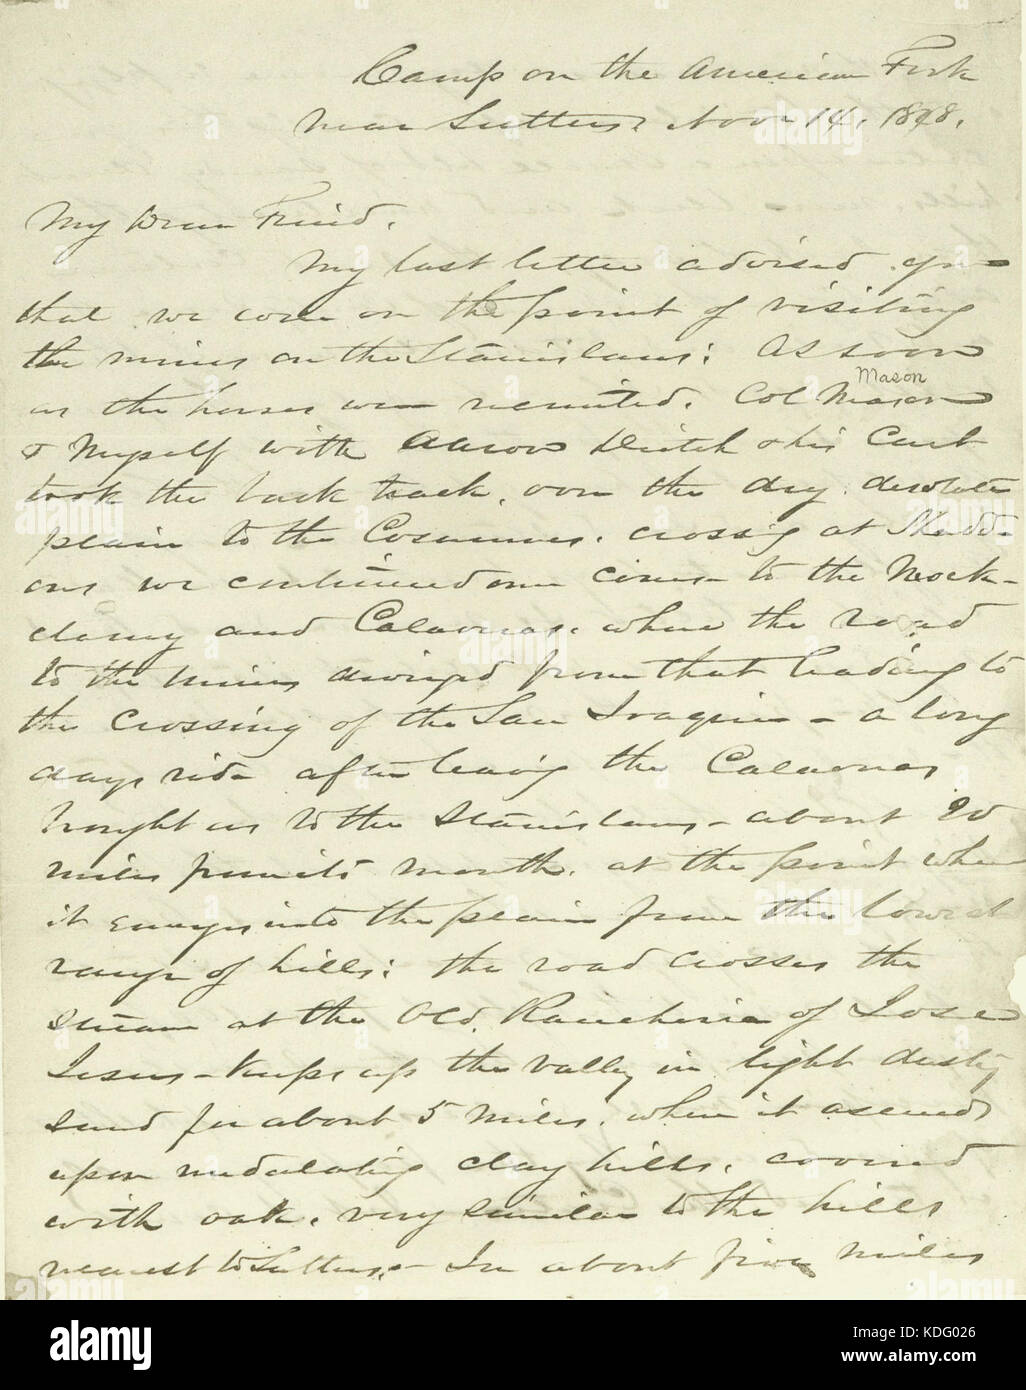 Camp on the American Fork
Near Sutters, Nov 14, 1848.
My Dear Friend.
My last letter advised you
that we were on the point of visiting
the mines on the Stanislaus: As soon
Mason
as the horses were recruited. Col Mason
& Myself with Aaron Dutch & his Cart
took the back track, over the dry desolate
plain to the Cosumnes, crossig at
we continued our course to the Mock-
elamy and Calaveras. where the road
to the mines diverged from that leading to
the crossing of the San Joaquin - a long
days ride after leavig the Calaveras
brought us to the Stanislaus - about 20
miles from its mouth, at the point where
it emerges into the plain from the lowest
range of hills: the road crosses the
stream at the Old Rancheria of Jose
Jesus - keeps up the valley in light dusty
sand for about 5 miles, when it ascends
upon undulating clay hills, covered
with oak, very similar to the hills
nearest to Sutters, - In about five miles
alamy
alamy
Image ID: KDG026
www.alamy.com